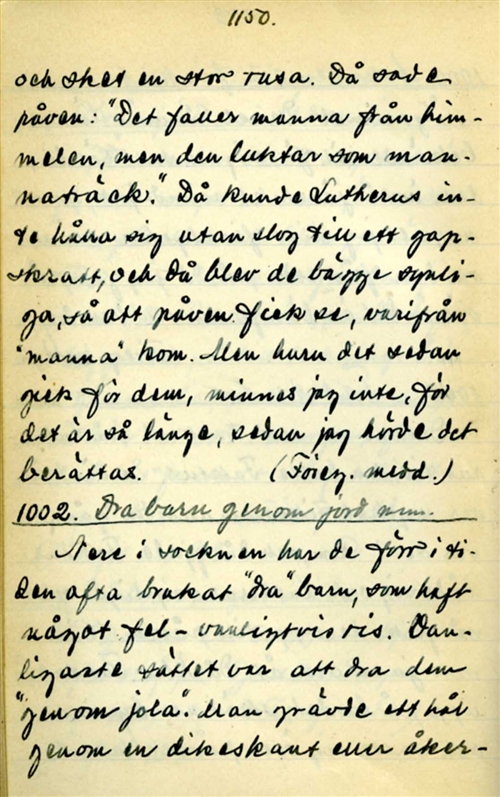 1150.
och sket en stor rusa. Då sade
påven: "Det faller manna från him-
melen, men den luktar som man-
naträck." Då kunde Lutherus in-
te hålla sig utan slog till ett gap-
skratt, och då blev de bägge synli-
ga, så att påven fick se, varifrån
"manna" kom. Men huru det sedan
gick för dem, minnes jag inte, för
det är så länge, sedan jag hörde det
berättas. (Föreg. medd.)
1002. Dra barn genom jord m.m.
Nere i socknen har de förr i ti-
den ofta brukat "dra" barn, som haft
något fel - vanligtvis ris. Van-
ligaste sättet var att dra dem
"genom jola". Man grävde ett hål
genom en dikeskant eller åker-